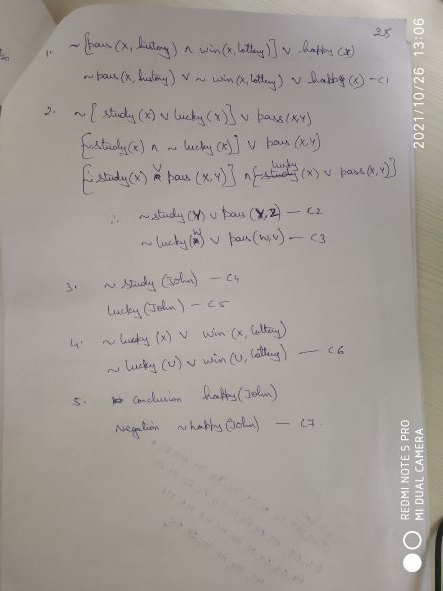 25
1. ~[pass(X, history) ∧ win(X, lottery)] ∨ happy(X)
~pass(X, history) ∨ ~win(X, lottery) ∨ happy(X) — C1
2. ~[study(X) ∨ lucky(X)] ∨ pass(X,Y)
[~study(X) ∧ ~lucky(X)] ∨ pass(X,Y)
[~study(X) ∨ pass(X,Y)] ∧ [~lucky(X) ∨ pass(X,Y)]
∴ ~study(Y) ∨ pass(Y,Z) — C2
~lucky(W) ∨ pass(W,V) — C3
3. ~study(John) — C4
lucky(John) — C5
4. ~lucky(X) ∨ win(X, lottery)
~lucky(U) ∨ win(U, lottery) — C6
5. Conclusion happy(John)
Negation ~happy(John) — C7.
2021/10/26 13:06
REDMI NOTE 5 PRO
MI DUAL CAMERA